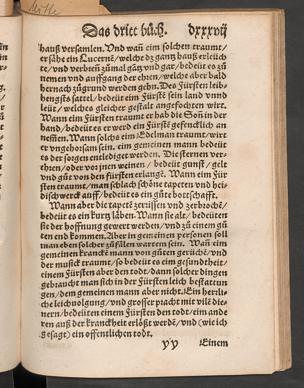 Das dritt bůch. dxxxvij
hauß versamlen. Vnd wañ eim solchen traumt/
er sähe ein Lucernē/welche dz gantz hauß erleüch
te/vnd verbien zůmal gātz vnd gar/bedeüt es zů
nemen vnd auffgang der ehren/welche aber bald
hernach zůgrund werden gehn. Des Fürsten leib
hengsts sattel/bedeüt eim Fürstē sein land vnnd
leüt/welches gleicher gestalt angefochten wirt.
Wann eim Fürsten traumt er hab die Soñ in der
hand/bedeüt es er werd ein Fürstē gefencklich an
nemen. Wann solchs eim Edelman traumt/wirt
er vngehorsam sein. eim gemeinen mann bedeüt
es der sorgen entlediget werden. Die sternen ver-
ehren/oder vor jnen weinen/ bedeüt gunst/gelt
vnd gůt von den fürsten erlangē. Wann eim Für
sten traumt/man schlach schöne tapeten vnd hei-
dischwerck auff/bedeüt es ein gůte bottschafft.
Wann aber die tapetē zerrissen vnd zerbrochē/
bedeüt es ein kurtz läben. Wann sie alt/bedeüten
sie der hoffnung gewert werden/vnd zů einem gů
ten end kommen. Aber in gemeinen personen soll
man eben solcher zůfälen warten sein. Wañ eim
gemeinen krancken mann von gůtem gerücht/vnd
der musick traumt/so bedeüt es ein gesundtheit/
einem Fürsten aber den todt/dann solcher dingen
gebraucht man sich in der Fürsten leich bestattun
gen/dem gemeinen mann aber nicht. Ein herrli-
che leichvolgung/vnd grosser pracht mit vile die-
nern/bedeüten einem Fürsten den todt/eim ande
ren auß der kranckheit erlößt werdē/vnd (wie ich
gesagt) ein offentlichen todt.
yy Einem